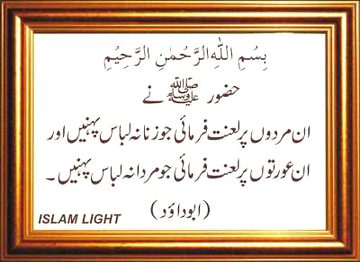 بِسْمِ اللهِ الرَّحْمٰنِ الرَّحِيْمِ
حضور ﷺ نے
ان مردوں پر لعنت فرمائی جو زنانہ لباس پہنیں اور
ان عورتوں پر لعنت فرمائی جو مردانہ لباس پہنیں۔
(ابوداؤد)
ISLAM LIGHT